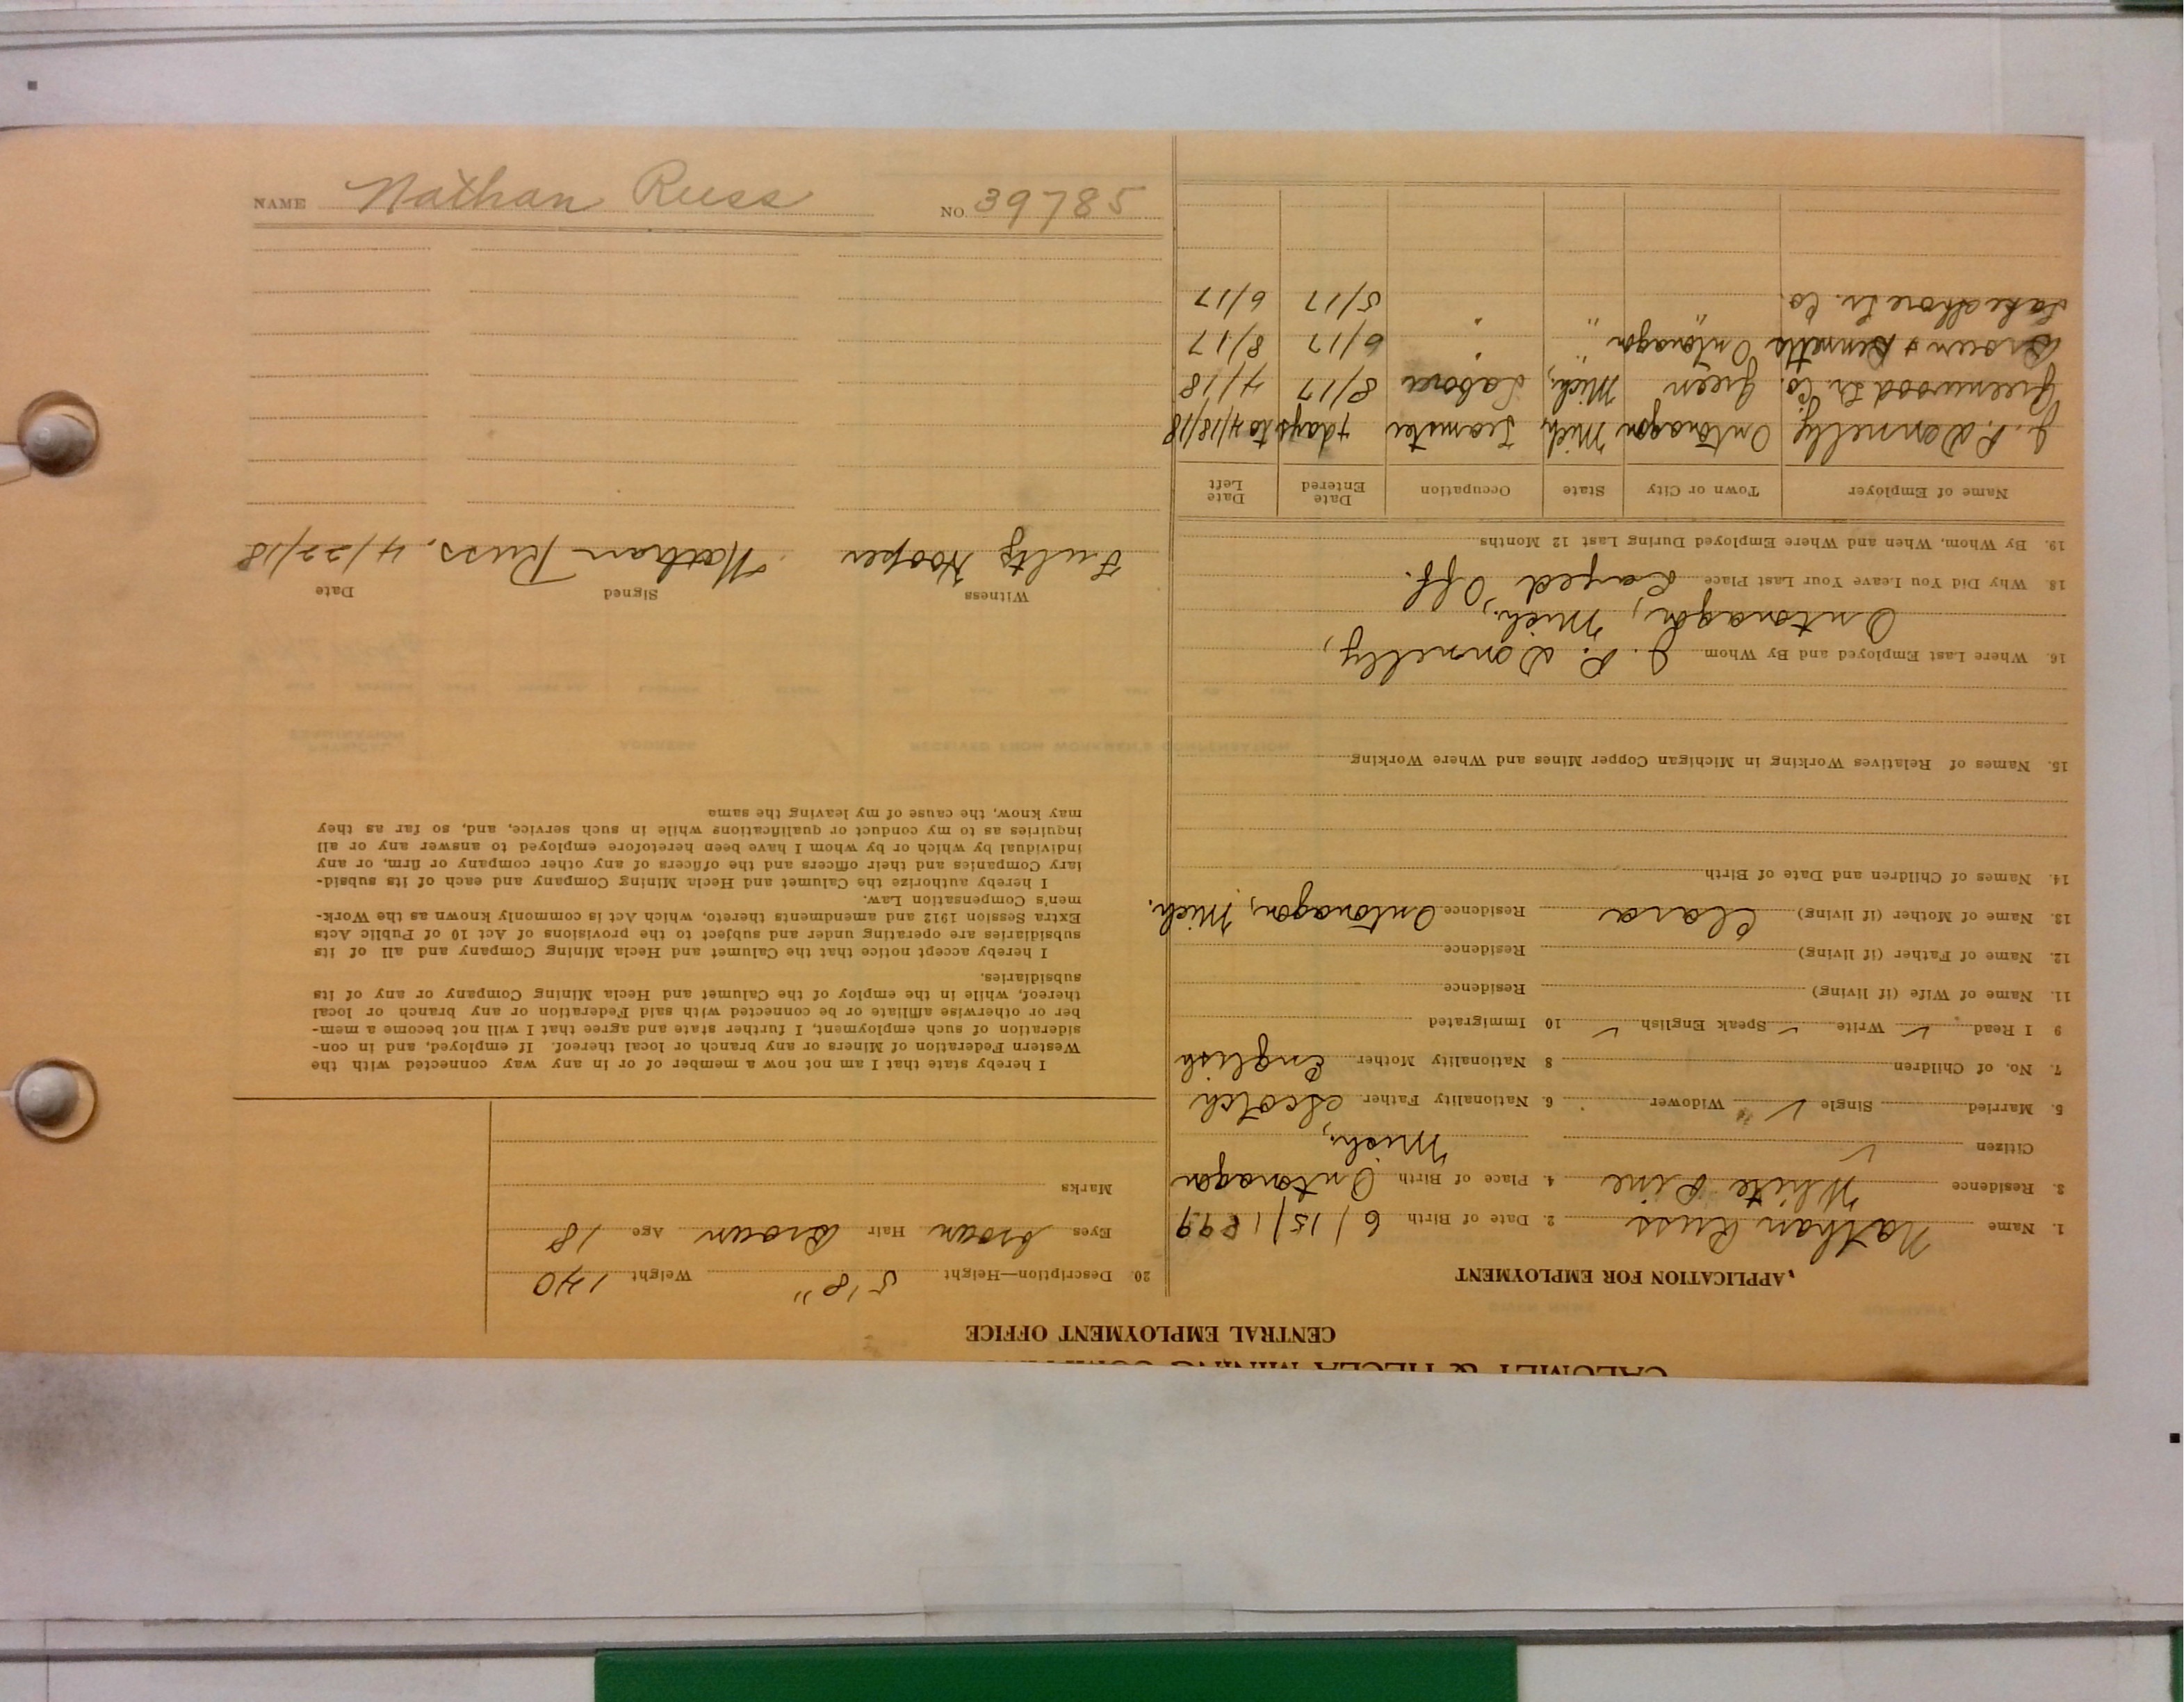 CALUMET & HECLA MINING
CENTRAL EMPLOYMENT OFFICE
APPLICATION FOR EMPLOYMENT
1. Name Nathan Russ 2. Date of Birth 6/15/1899
3. Residence White Pine 4. Place of Birth Ontonagon
Citizen ✓ Mich,
5. Married Single ✓ Widower 6. Nationality Father Scotch
7. No. of Children 8 Nationality Mother English
9 I Read ✓ Write ✓ Speak English ✓ 10 Immigrated
11. Name of Wife (if living) Residence
12. Name of Father (if living) Residence
13. Name of Mother (if living) Clara Residence Ontonagon, Mich.
14. Names of Children and Date of Birth
15. Names of Relatives Working in Michigan Copper Mines and Where Working
16. Where Last Employed and By Whom J. P. Donnelly,
Ontonagon, Mich.,
18. Why Did You Leave Your Last Place Layed Off.
19. By Whom, When and Where Employed During Last 12 Months
Name of Employer Town or City State Occupation Date Entered Date Left
J. P. Donnelly Ontonagon Mich, Teamster 4 days to 4/18/18
Greenwood Lr. Co. Green Mich, Laborer 8/17 4/18
Brown & Bennetts Ontonagon " " 6/17 8/17
Lake Shore Lr. Co. " " " 5/17 6/17
20. Description—Height 5'8" Weight 140
Eyes Brown Hair Brown Age 18
Marks
I hereby state that I am not now a member of or in any way connected with the
Western Federation of Miners or any branch or local thereof. If employed, and in con-
sideration of such employment, I further state and agree that I will not become a mem-
ber or otherwise affiliate or be connected with said Federation or any branch or local
thereof, while in the employ of the Calumet and Hecla Mining Company or any of its
subsidiaries.
I hereby accept notice that the Calumet and Hecla Mining Company and all of its
subsidiaries are operating under and subject to the provisions of Act 10 of Public Acts
Extra Session 1912 and amendments thereto, which Act is commonly known as the Work-
men's Compensation Law.
I hereby authorize the Calumet and Hecla Mining Company and each of its subsid-
iary Companies and their officers and the officers of any other company or firm, or any
individual by which or by whom I have been heretofore employed to answer any or all
inquiries as to my conduct or qualifications while in such service, and, so far as they
may know, the cause of my leaving the same
Witness Signed Date
Fultz Hooper Nathan Russ, 4/22/18
NAME Nathan Russ NO. 39785